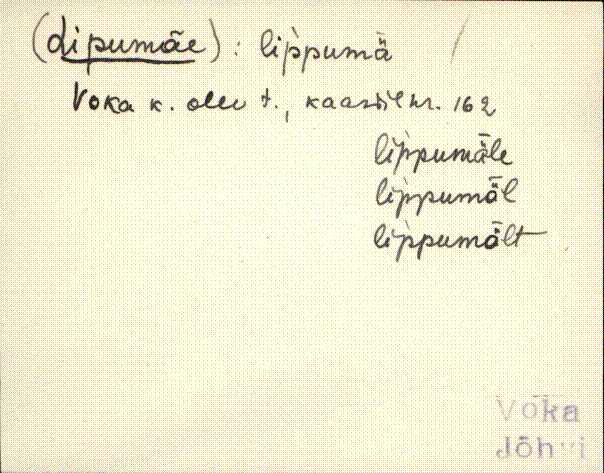 (Lipumäe) : lìppumä̅
Voka k. olev t., kaasiil nr. 162
lìppumä̅le
lìppumä̅l
lìppumä̅lt
Voka
Jõhvi